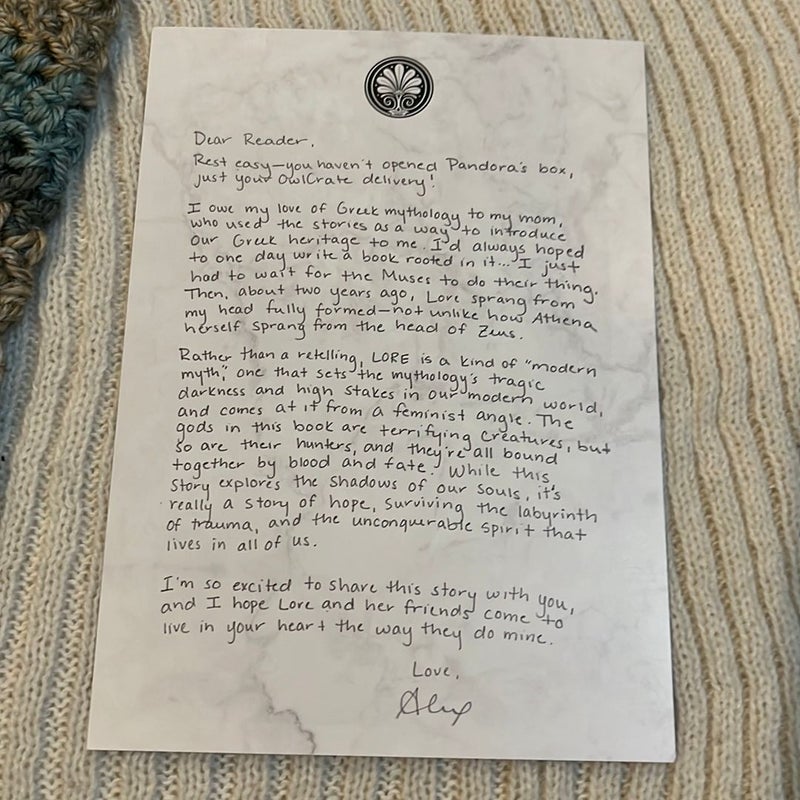 Dear Reader,
Rest easy—you haven't opened Pandora's box,
just your OwlCrate delivery!
I owe my love of Greek mythology to my mom,
who used the stories as a way to introduce
our Greek heritage to me. I'd always hoped
to one day write a book rooted in it... I just
had to wait for the Muses to do their thing.
Then, about two years ago, Lore sprang from
my head fully formed—not unlike how Athena
herself sprang from the head of Zeus.
Rather than a retelling, LORE is a kind of "modern
myth," one that sets the mythology's tragic
darkness and high stakes in our modern world,
and comes at it from a feminist angle. The
gods in this book are terrifying creatures, but
so are their hunters, and they're all bound
together by blood and fate. While this
story explores the shadows of our souls, it's
really a story of hope, surviving the labyrinth
of trauma, and the unconquerable spirit that
lives in all of us.
I'm so excited to share this story with you,
and I hope Lore and her friends come to
live in your heart the way they do mine.
Love,
Alex